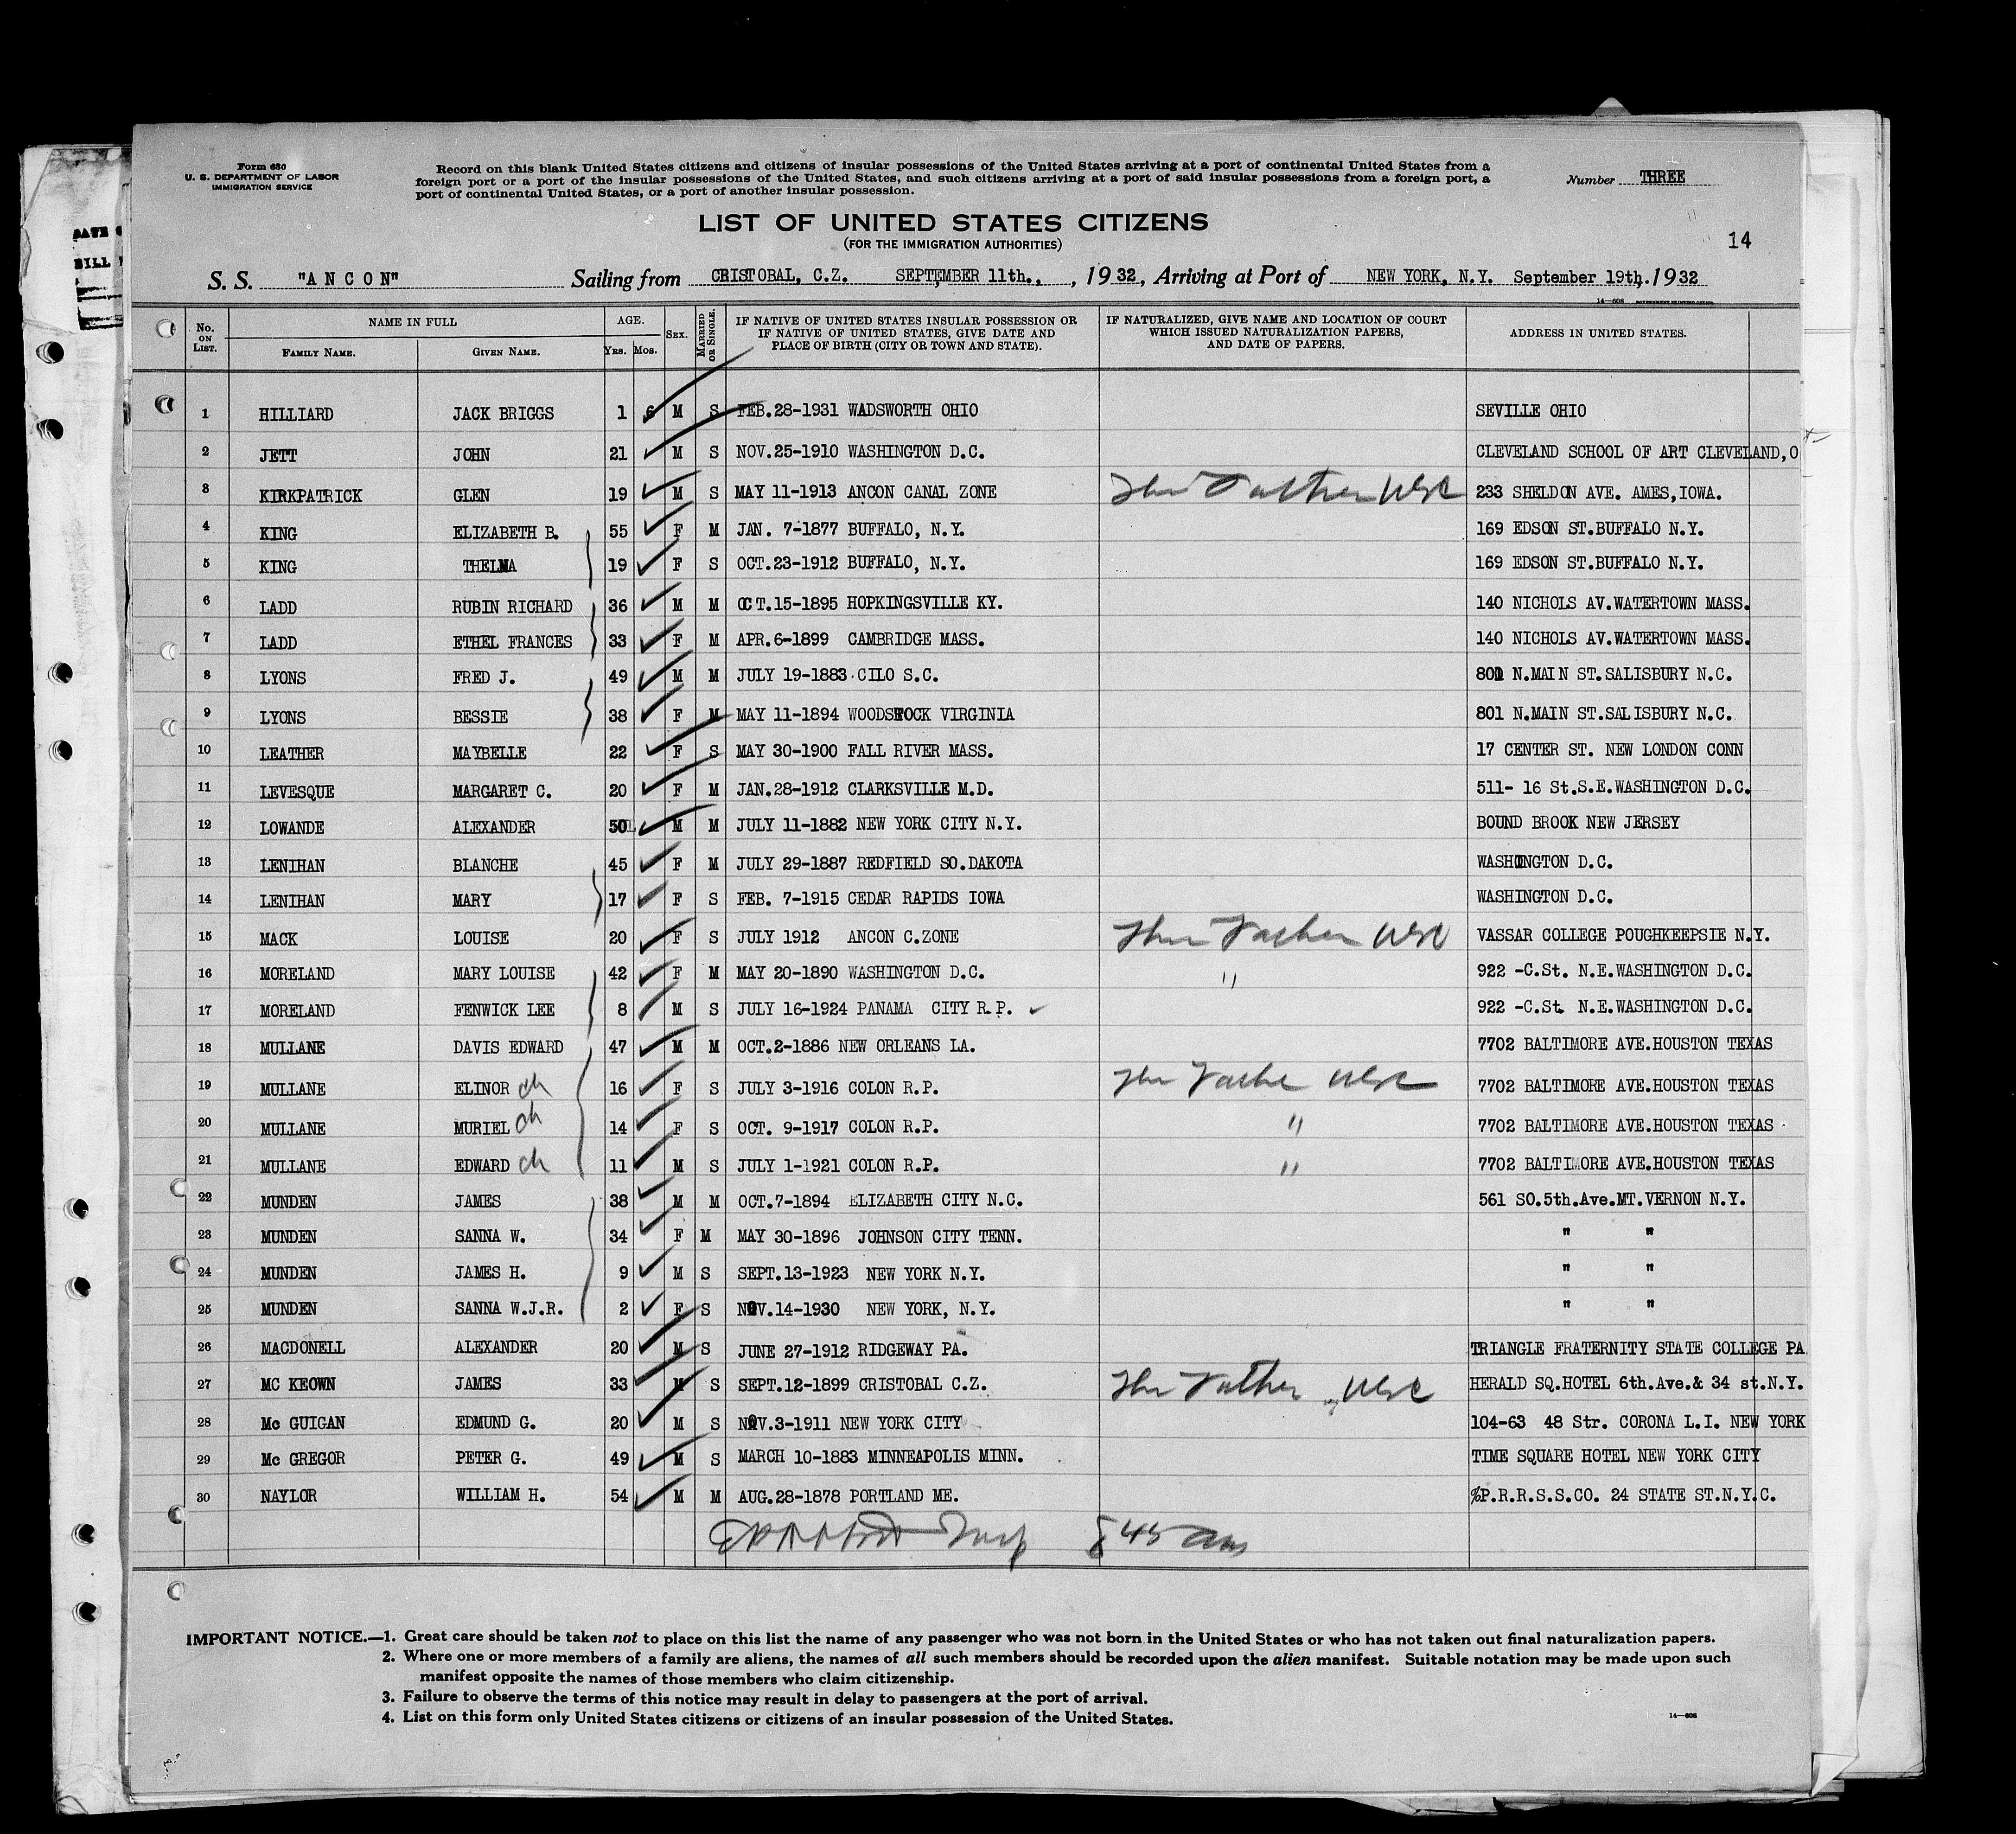 Form 686
U. S. DEPARTMENT OF LABOR
IMMIGRATION SERVICE
Record on this blank United States citizens and citizens of insular possessions of the United States arriving at a port of continental United States from a
foreign port or a port of the insular possessions of the United States, and such citizens arriving at a port of said insular possessions from a foreign port, a
port of continental United States, or a port of another insular possession.
Number THREE
LIST OF UNITED STATES CITIZENS
(FOR THE IMMIGRATION AUTHORITIES)
14
S. S. "A N C O N" Sailing from CRISTOBAL, C.Z. SEPTEMBER 11th., , 1932, Arriving at Port of NEW YORK, N.Y. September 19th, 1932
14—608 GOVERNMENT PRINTING OFFICE
No. ON LIST. NAME IN FULL FAMILY NAME. GIVEN NAME. AGE. Yrs. Mos. SEX. MARRIED OR SINGLE. IF NATIVE OF UNITED STATES INSULAR POSSESSION OR IF NATIVE OF UNITED STATES, GIVE DATE AND PLACE OF BIRTH (CITY OR TOWN AND STATE). IF NATURALIZED, GIVE NAME AND LOCATION OF COURT WHICH ISSUED NATURALIZATION PAPERS, AND DATE OF PAPERS. ADDRESS IN UNITED STATES.
1 HILLIARD JACK BRIGGS 1 6 M S FEB.28-1931 WADSWORTH OHIO SEVILLE OHIO
2 JETT JOHN 21 M S NOV.25-1910 WASHINGTON D.C. CLEVELAND SCHOOL OF ART CLEVELAND,O
3 KIRKPATRICK GLEN 19 M S MAY 11-1913 ANCON CANAL ZONE Thru Father 233 SHELDON AVE. AMES,IOWA.
4 KING ELIZABETH B. 55 F M JAN. 7-1877 BUFFALO, N.Y. 169 EDSON ST.BUFFALO N.Y.
5 KING THELMA 19 F S OCT.23-1912 BUFFALO, N.Y. 169 EDSON ST.BUFFALO N.Y.
6 LADD RUBIN RICHARD 36 M M OCT.15-1895 HOPKINGSVILLE KY. 140 NICHOLS AV.WATERTOWN MASS.
7 LADD ETHEL FRANCES 33 F M APR.6-1899 CAMBRIDGE MASS. 140 NICHOLS AV.WATERTOWN MASS.
8 LYONS FRED J. 49 M M JULY 19-1883 CILO S.C. 801 N.MAIN ST.SALISBURY N.C.
9 LYONS BESSIE 38 F M MAY 11-1894 WOODSTOCK VIRGINIA 801 N.MAIN ST.SALISBURY N.C.
10 LEATHER MAYBELLE 22 F S MAY 30-1900 FALL RIVER MASS. 17 CENTER ST. NEW LONDON CONN
11 LEVESQUE MARGARET C. 20 F M JAN.28-1912 CLARKSVILLE M.D. 511- 16 St.S.E.WASHINGTON D.C.
12 LOWANDE ALEXANDER 50 M M JULY 11-1882 NEW YORK CITY N.Y. BOUND BROOK NEW JERSEY
13 LENIHAN BLANCHE 45 F M JULY 29-1887 REDFIELD SO.DAKOTA WASHINGTON D.C.
14 LENIHAN MARY 17 F S FEB. 7-1915 CEDAR RAPIDS IOWA WASHINGTON D.C.
15 MACK LOUISE 20 F S JULY 1912 ANCON C.ZONE Thru Father VASSAR COLLEGE POUGHKEEPSIE N.Y.
16 MORELAND MARY LOUISE 42 F M MAY 20-1890 WASHINGTON D.C. " 922 -C.St. N.E.WASHINGTON D.C.
17 MORELAND FENWICK LEE 8 M S JULY 16-1924 PANAMA CITY R.P. 922 -C.St. N.E.WASHINGTON D.C.
18 MULLANE DAVIS EDWARD 47 M M OCT.2-1886 NEW ORLEANS LA. 7702 BALTIMORE AVE.HOUSTON TEXAS
19 MULLANE ELINOR ch 16 F S JULY 3-1916 COLON R.P. Thru Father 7702 BALTIMORE AVE.HOUSTON TEXAS
20 MULLANE MURIEL ch 14 F S OCT. 9-1917 COLON R.P. " 7702 BALTIMORE AVE.HOUSTON TEXAS
21 MULLANE EDWARD ch 11 M S JULY 1-1921 COLON R.P. " 7702 BALTIMORE AVE.HOUSTON TEXAS
22 MUNDEN JAMES 38 M M OCT.7-1894 ELIZABETH CITY N.C. 561 SO.5th.Ave.MT.VERNON N.Y.
23 MUNDEN SANNA W. 34 F M MAY 30-1896 JOHNSON CITY TENN. " "
24 MUNDEN JAMES H. 9 M S SEPT.13-1923 NEW YORK N.Y. " "
25 MUNDEN SANNA W.J.R. 2 F S NOV.14-1930 NEW YORK, N.Y. " "
26 MACDONELL ALEXANDER 20 M S JUNE 27-1912 RIDGEWAY PA. TRIANGLE FRATERNITY STATE COLLEGE PA
27 MC KEOWN JAMES 33 M S SEPT.12-1899 CRISTOBAL C.Z. Thru Father HERALD SQ.HOTEL 6th.Ave.& 34 st.N.Y.
28 Mc GUIGAN EDMUND G. 20 M S NOV.3-1911 NEW YORK CITY 104-63 48 Str. CORONA L.I. NEW YORK
29 Mc GREGOR PETER G. 49 M S MARCH 10-1883 MINNEAPOLIS MINN. TIME SQUARE HOTEL NEW YORK CITY
30 NAYLOR WILLIAM H. 54 M M AUG.28-1878 PORTLAND ME. %P.R.R.S.S.CO. 24 STATE ST.N.Y.C.
Insp 8 45 am
IMPORTANT NOTICE.—1. Great care should be taken not to place on this list the name of any passenger who was not born in the United States or who has not taken out final naturalization papers.
2. Where one or more members of a family are aliens, the names of all such members should be recorded upon the alien manifest. Suitable notation may be made upon such
manifest opposite the names of those members who claim citizenship.
3. Failure to observe the terms of this notice may result in delay to passengers at the port of arrival.
4. List on this form only United States citizens or citizens of an insular possession of the United States.
14—608